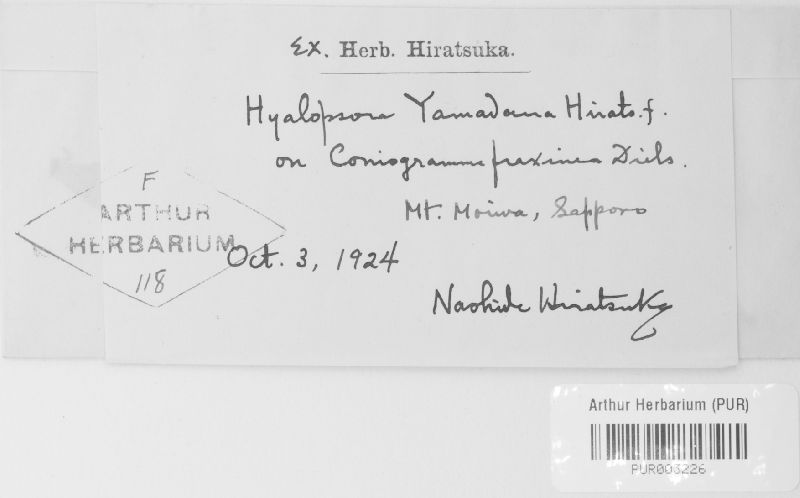 Ex. Herb. Hiratsuka.
Hyalopsora Yamadana Hirats. f.
on Coniogramme fraxinea Diels.
Mt. Moiwa, Sapporo
Oct. 3, 1924
Naohide Hiratsuka
F
ARTHUR
HERBARIUM
118
Arthur Herbarium (PUR)
PUR003226